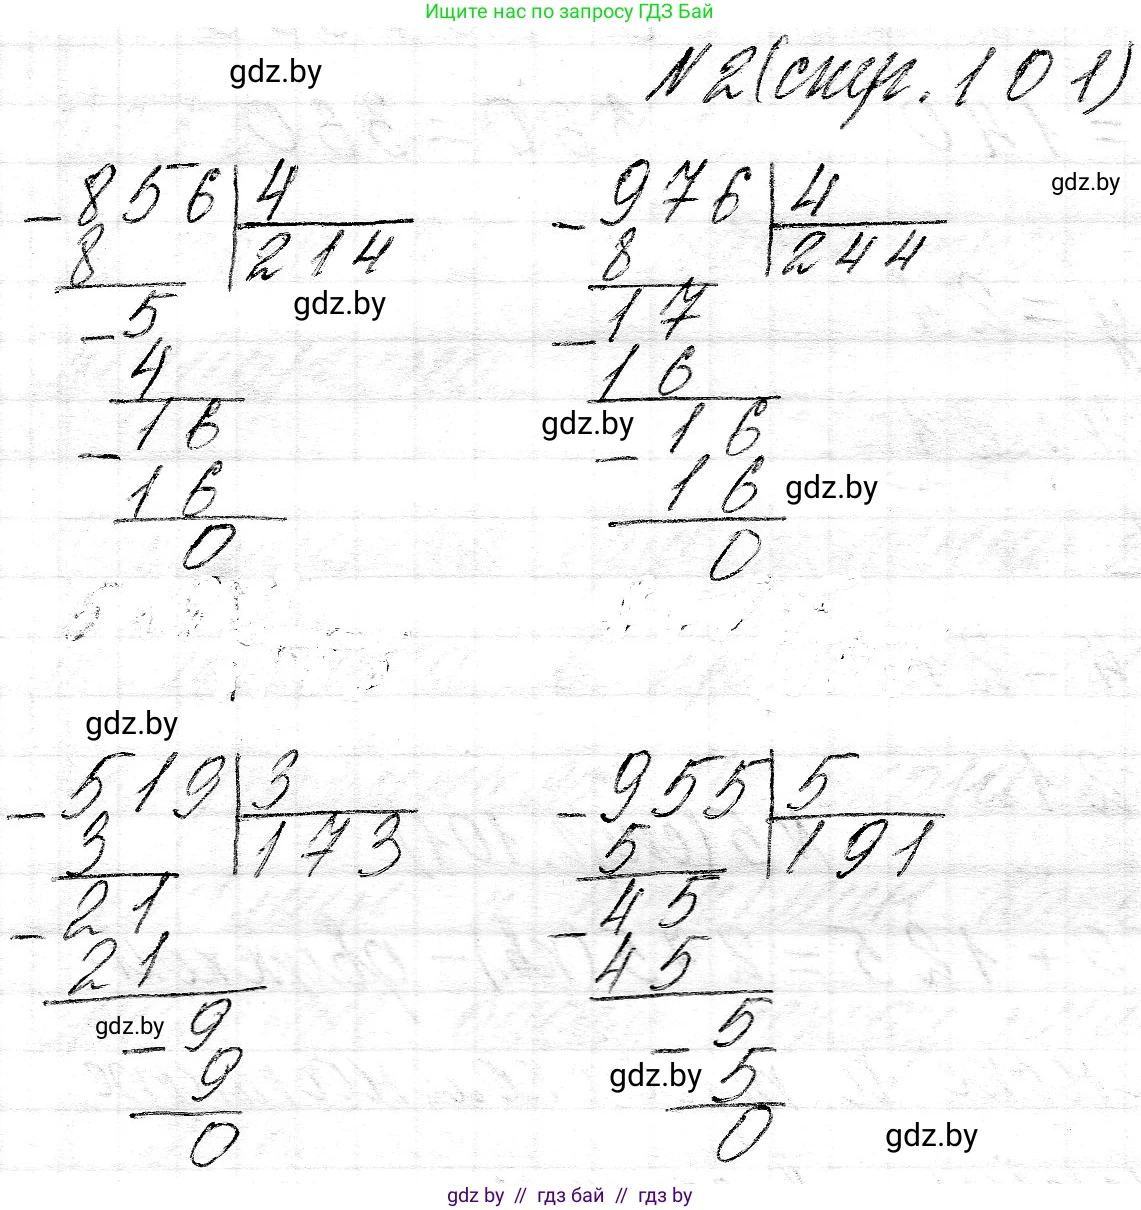 Ищите нас по запросу ГДЗ Бай
gdz.by
№2(стр. 101)
gdz.by
-856 | 4
8 | 214
gdz.by
-5
4
-16
16
0
-976 | 4
8 | 244
-17
16
gdz.by
-16
16
gdz.by
0
gdz.by
-519 | 3
3 | 173
-21
21
gdz.by
-9
9
0
-955 | 5
5 | 191
-45
45
-5
gdz.by
5
0
gdz.by
gdz by // гдз бай // гдз by